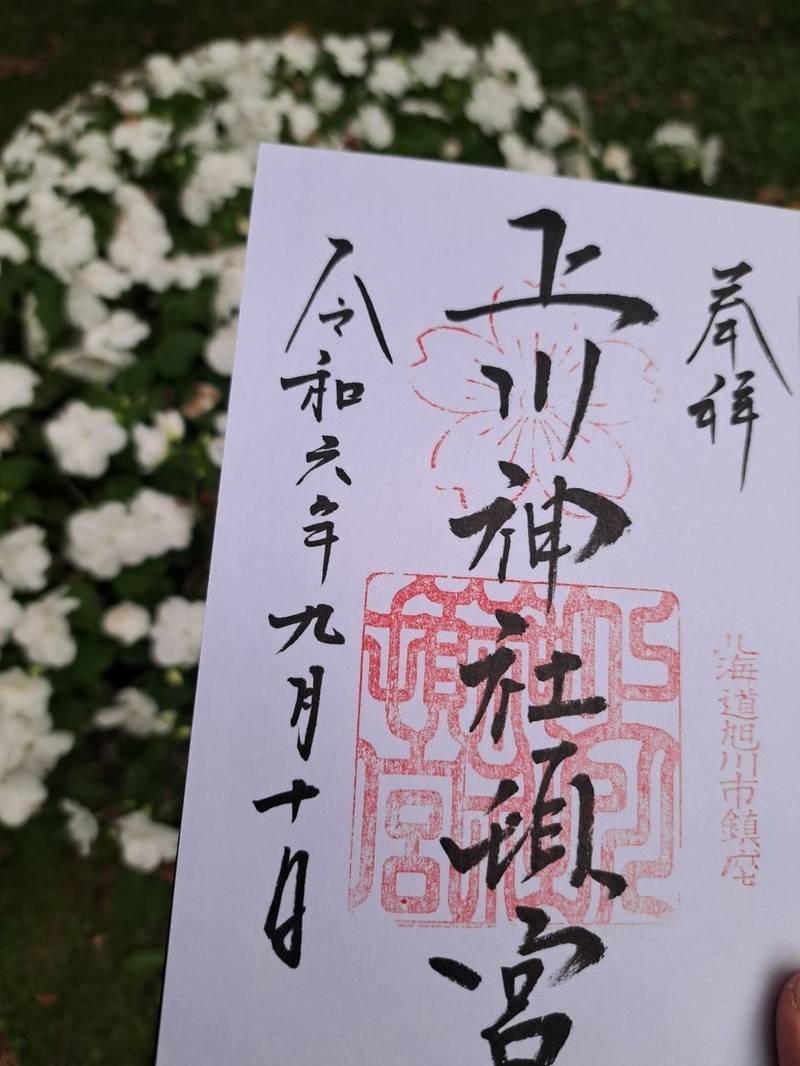 奉拝
北海道旭川市鎮座
上川神社頓宮
令和六年九月十日